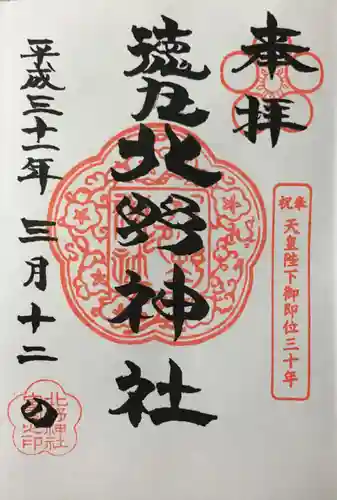 奉拝
奉祝
天皇陛下御即位三十年
徳丸北野神社
平成三十一年三月十二日
北野神社